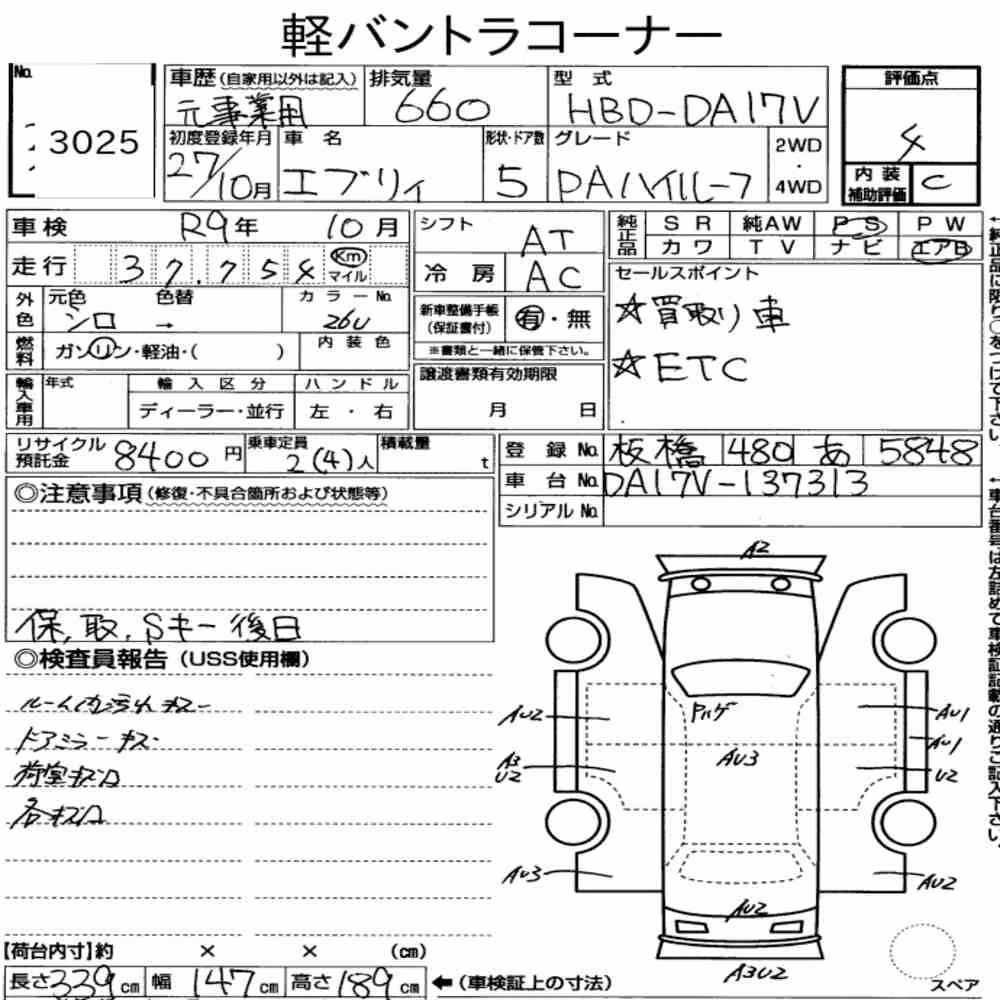 軽バントラコーナー
No. 3025
車歴(自家用以外は記入) 元事業用
排気量 660
型式 HBD-DA17V
評価点 4
内装補助評価 C
初度登録年月 27/10月
車名 エブリィ
形状・ドア数 5
グレード PAハイルーフ
2WD・4WD
車検 R9年 10月
走行 37,754 Km マイル
外色 元色 シロ 色替 →
カラーNo. 26U
燃料 ガソリン・軽油・( )
内装色
輸入車用 年式 輸入区分 ディーラー・並行 ハンドル 左・右
シフト AT
冷房 AC
新車整備手帳(保証書付) 有・無
※書類と一緒に保管下さい。
譲渡書類有効期限 月 日
純正品 SR 純AW PS PW
カワ TV ナビ エアB
セールスポイント
☆買取り車
☆ETC
←純正品に限り○をつけて下さい。
リサイクル預託金 8400円
乗車定員 2(4)人
積載量 t
登録No. 板橋 480 あ 5848
車台No. DA17V-137313
シリアルNo.
←車台番号は左詰めで車検証記載の通りご記入下さい。
◎注意事項(修復・不具合箇所および状態等)
保,取,Sキー後日
◎検査員報告(USS使用欄)
ルーム内汚れキズ
ドアミラーキズ
荷室キズ凹
各キズ凹
A2
AU2
Pハゲ
AU1
AU3
AU1
A3
U2
U2
AU3
AU2
AU2
A3U2
スペア
【荷台内寸】約 × × (cm)
長さ339cm 幅147cm 高さ189cm ←(車検証上の寸法)